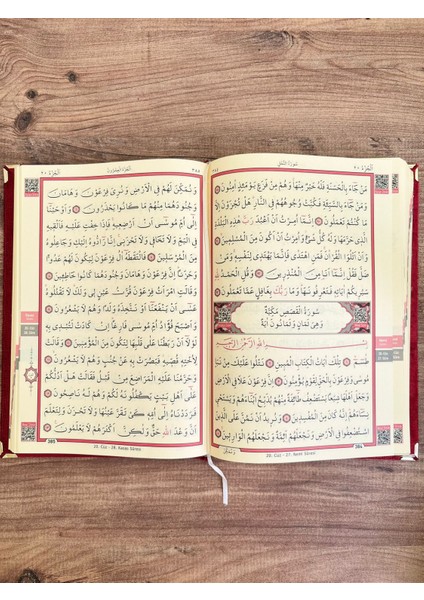 اَلْجُزْءُ ٢٠
سُورَةُ النَّمْلِ
مَنْ جَٓاءَ بِالْحَسَنَةِ فَلَهُ خَيْرٌ مِنْهَا وَهُمْ مِنْ فَزَعٍ يَوْمَئِذٍ اٰمِنُونَ وَ
مَنْ جَٓاءَ بِالسَّيِّئَةِ فَكُبَّتْ وُجُوهُهُمْ فِي النَّارِ هَلْ تُجْزَوْنَ اِلَّا
مَا كُنْتُمْ تَعْمَلُونَ اِنَّمَٓا اُمِرْتُ اَنْ اَعْبُدَ رَبَّ هٰذِهِ الْبَلْدَةِ
الَّذٖي حَرَّمَهَا وَلَهُ كُلُّ شَيْءٍ وَاُمِرْتُ اَنْ اَكُونَ مِنَ الْمُسْلِمٖينَ
وَاَنْ اَتْلُوَا الْقُرْاٰنَ فَمَنِ اهْتَدٰى فَاِنَّمَا يَهْتَدٖي لِنَفْسِهٖ وَمَنْ
ضَلَّ فَقُلْ اِنَّمَٓا اَنَا مِنَ الْمُنْذِرٖينَ وَقُلِ الْحَمْدُ لِلّٰهِ
سَيُرٖيكُمْ اٰيَاتِهٖ فَتَعْرِفُونَهَا وَمَا رَبُّكَ بِغَافِلٍ عَمَّا تَعْمَلُونَ
سُورَةُ الْقَصَصِ مَكِّيَّةٌ
وَهِيَ ثَمَانٍ وَثَمَانُونَ اٰيَةً
بِسْمِ اللّٰهِ الرَّحْمٰنِ الرَّحٖيمِ
طٰسٓمٓ تِلْكَ اٰيَاتُ الْكِتَابِ الْمُبٖينِ نَتْلُوا عَلَيْكَ مِنْ
نَبَأِ مُوسٰى وَفِرْعَوْنَ بِالْحَقِّ لِقَوْمٍ يُؤْمِنُونَ اِنَّ فِرْعَوْنَ عَلَا فِي الْاَرْضِ
وَجَعَلَ اَهْلَهَا شِيَعًا يَسْتَضْعِفُ طَٓائِفَةً مِنْهُمْ يُذَبِّحُ اَبْنَٓاءَهُمْ وَيَسْتَحْيٖي
نِسَٓاءَهُمْ اِنَّهُ كَانَ مِنَ الْمُفْسِدٖينَ وَنُرٖيدُ اَنْ نَمُنَّ عَلَى الَّذٖينَ
اسْتُضْعِفُوا فِي الْاَرْضِ وَنَجْعَلَهُمْ اَئِمَّةً وَنَجْعَلَهُمُ الْوَارِثٖينَ
384
20. Cüz - 27. Neml Sûresi
اَلْجُزْءُ الْعِشْرُونَ
وَنُمَكِّنَ لَهُمْ فِي الْاَرْضِ وَنُرِيَ فِرْعَوْنَ وَهَامَانَ
وَجُنُودَهُمَا مِنْهُمْ مَا كَانُوا يَحْذَرُونَ وَاَوْحَيْنَٓا
اِلٰٓى اُمِّ مُوسٰٓى اَنْ اَرْضِعٖيهِ فَاِذَا خِفْتِ عَلَيْهِ فَاَلْقٖيهِ
فِي الْيَمِّ وَلَا تَخَافٖي وَلَا تَحْزَنٖي اِنَّا رَٓادُّوهُ اِلَيْكِ وَجَاعِلُوهُ
مِنَ الْمُرْسَلٖينَ فَالْتَقَطَهُٓ اٰلُ فِرْعَوْنَ لِيَكُونَ لَهُمْ عَدُوًّا
وَحَزَنًا اِنَّ فِرْعَوْنَ وَهَامَانَ وَجُنُودَهُمَا كَانُوا خَاطِـٖٔينَ
وَقَالَتِ امْرَاَتُ فِرْعَوْنَ قُرَّتُ عَيْنٍ لٖي وَلَكَ لَا تَقْتُلُوهُ
عَسٰٓى اَنْ يَنْفَعَنَٓا اَوْ نَتَّخِذَهُ وَلَدًا وَهُمْ لَا يَشْعُرُونَ
وَاَصْبَحَ فُؤٰادُ اُمِّ مُوسٰى فَارِغًا اِنْ كَادَتْ لَتُبْدٖي بِهٖ
لَوْلَٓا اَنْ رَبَطْنَا عَلٰى قَلْبِهَا لِتَكُونَ مِنَ الْمُؤْمِنٖينَ
وَقَالَتْ لِاُخْتِهٖ قُصّٖيهِ فَبَصُرَتْ بِهٖ عَنْ جُنُبٍ وَهُمْ لَا يَشْعُرُونَ
وَحَرَّمْنَا عَلَيْهِ الْمَرَاضِعَ مِنْ قَبْلُ فَقَالَتْ هَلْ اَدُلُّكُمْ
عَلٰٓى اَهْلِ بَيْتٍ يَكْفُلُونَهُ لَكُمْ وَهُمْ لَهُ نَاصِحُونَ
فَرَدَدْنَاهُ اِلٰٓى اُمِّهٖ كَيْ تَقَرَّ عَيْنُهَا وَلَا تَحْزَنَ وَلِتَعْلَمَ
اَنَّ وَعْدَ اللّٰهِ حَقٌّ وَلٰكِنَّ اَكْثَرَهُمْ لَا يَعْلَمُونَ
385
20. Cüz - 28. Kasas Sûresi